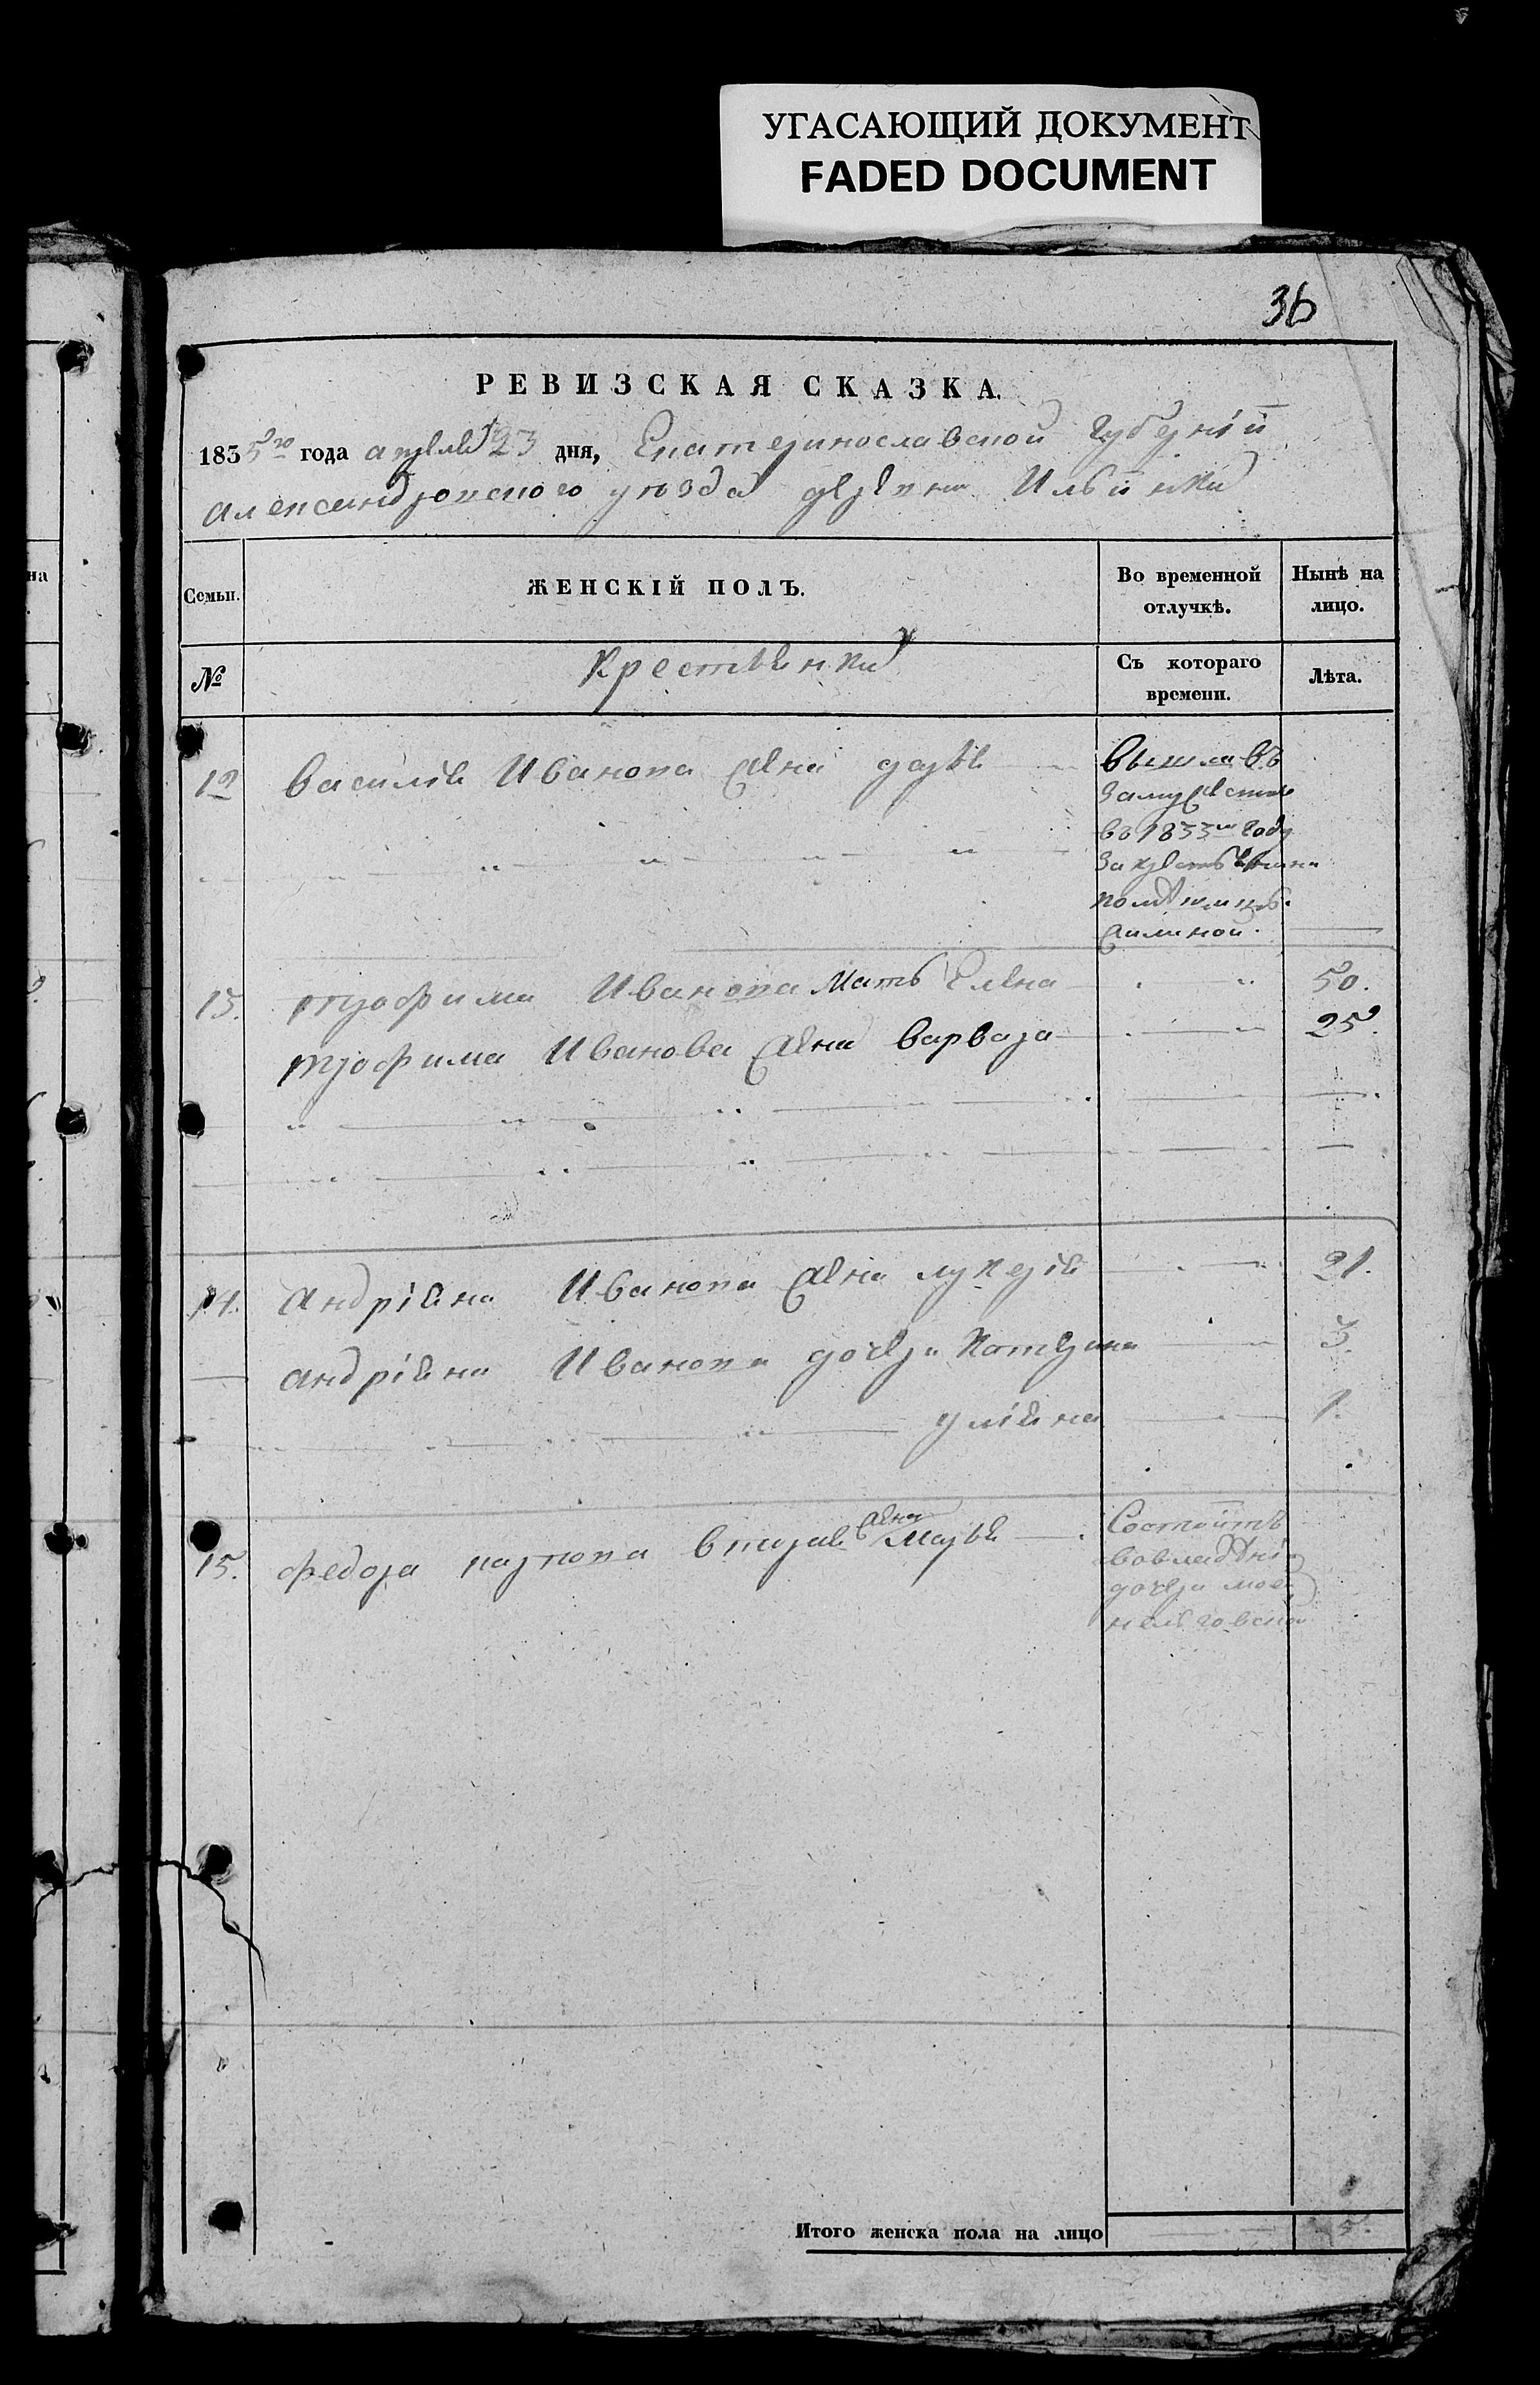 УГАСАЮЩИЙ ДОКУМЕНТ
FADED DOCUMENT
36
РЕВИЗСКАЯ СКАЗКА.
1835го года апреля 23 дня, Екатеринославской Губерніи
александровского уѣзда деревни Ильинки
Семьи. ЖЕНСКІЙ ПОЛЪ. Во временной отлучкѣ. Нынѣ на лицо.
№ Крестьянки Съ котораго времени. Лѣта.
12 василія Иванова жена дарья вышла въ
замужество
въ 1833м году
за крестьянина
помѣщицы
13. трофима Иванова Мать Елена 50.
трофима Иванова жена варвара 25.
14. андріяна Иванова жена лукерія 21.
андріяна Иванова дочери катерина 3.
уліяна 1.
15. федора карпова вторая жена марья Состоитъ
вовладѣніи
дочери моей
Итого женска пола на лицо 5.
на